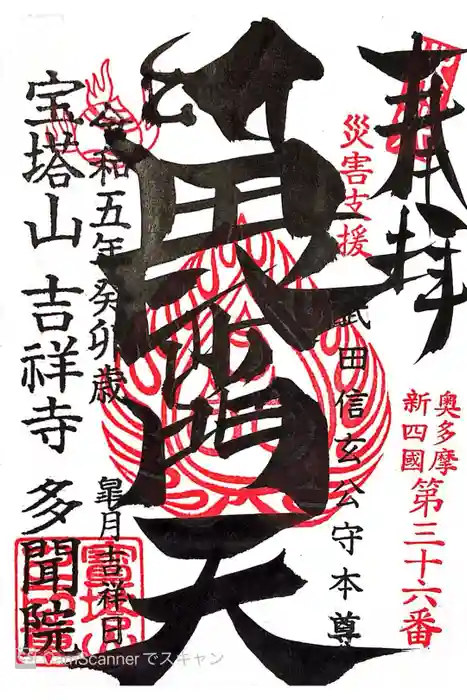 奉拝
奥多摩
新四國
第三十六番
災害支援
武田信玄公守本尊
毘沙門天
令和五年癸卯歳 皐月吉祥日
宝塔山 吉祥寺 多聞院
CamScannerでスキャン